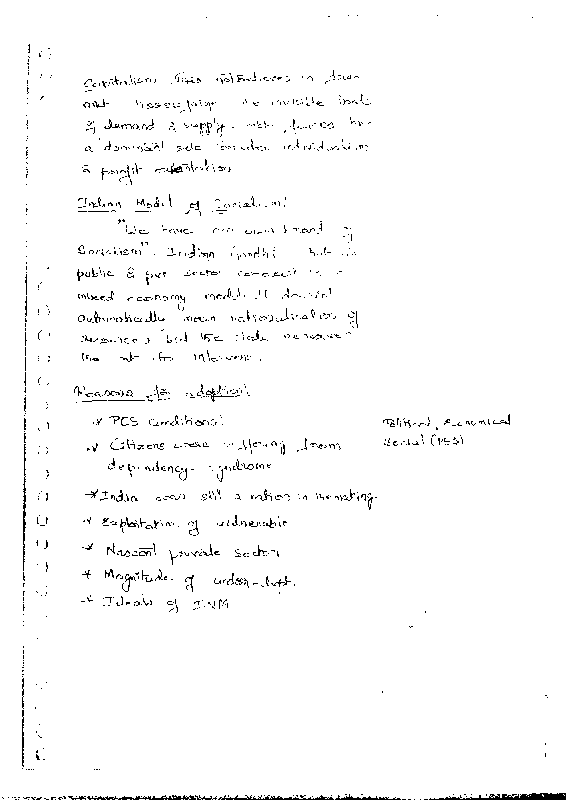 Capitalism This believes in
the invisible hands
of demand & supply. forces have
a dominant role individualism
& profit orientation
Indian Model of Socialism:
"We have our own brand of
Socialism". Indira Gandhi both
public & pvt sector in a
mixed economy model. It doesn't
automatically mean nationalisation of
resources but the state reserves
the rt to intervene.
Reasons for adoption:
* PES conditions
Political, Economical
Social (PES)
* Citizens were suffering from
dependency syndrome
* India was still a nation in the making
* Exploitation of vulnerable
* Nascent private sector
* Magnitude of under-
* Ideals of INM